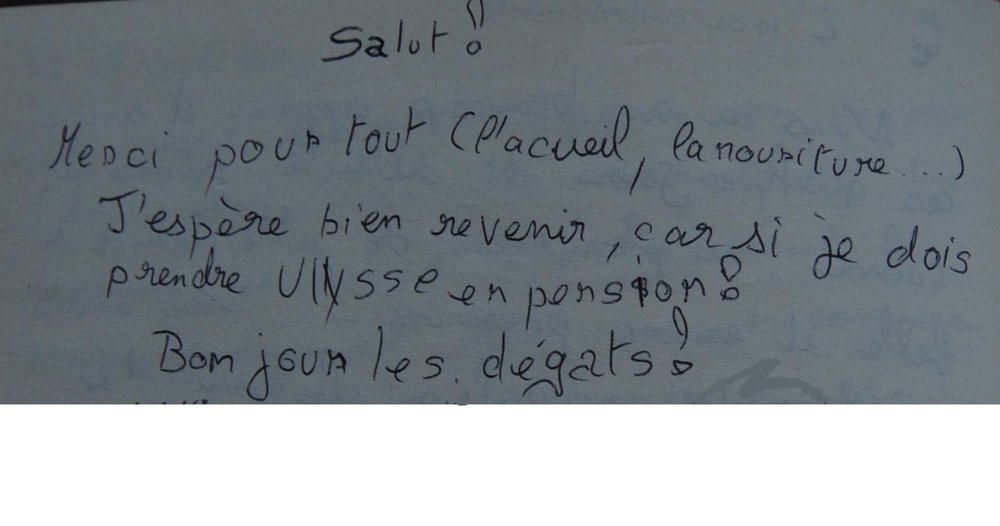 Salut !
Merci pour tout (l'acueil, la nouriture...)
J'espère bien revenir, car si je dois
prendre Ulysse en pension !
Bonjour les dégats !